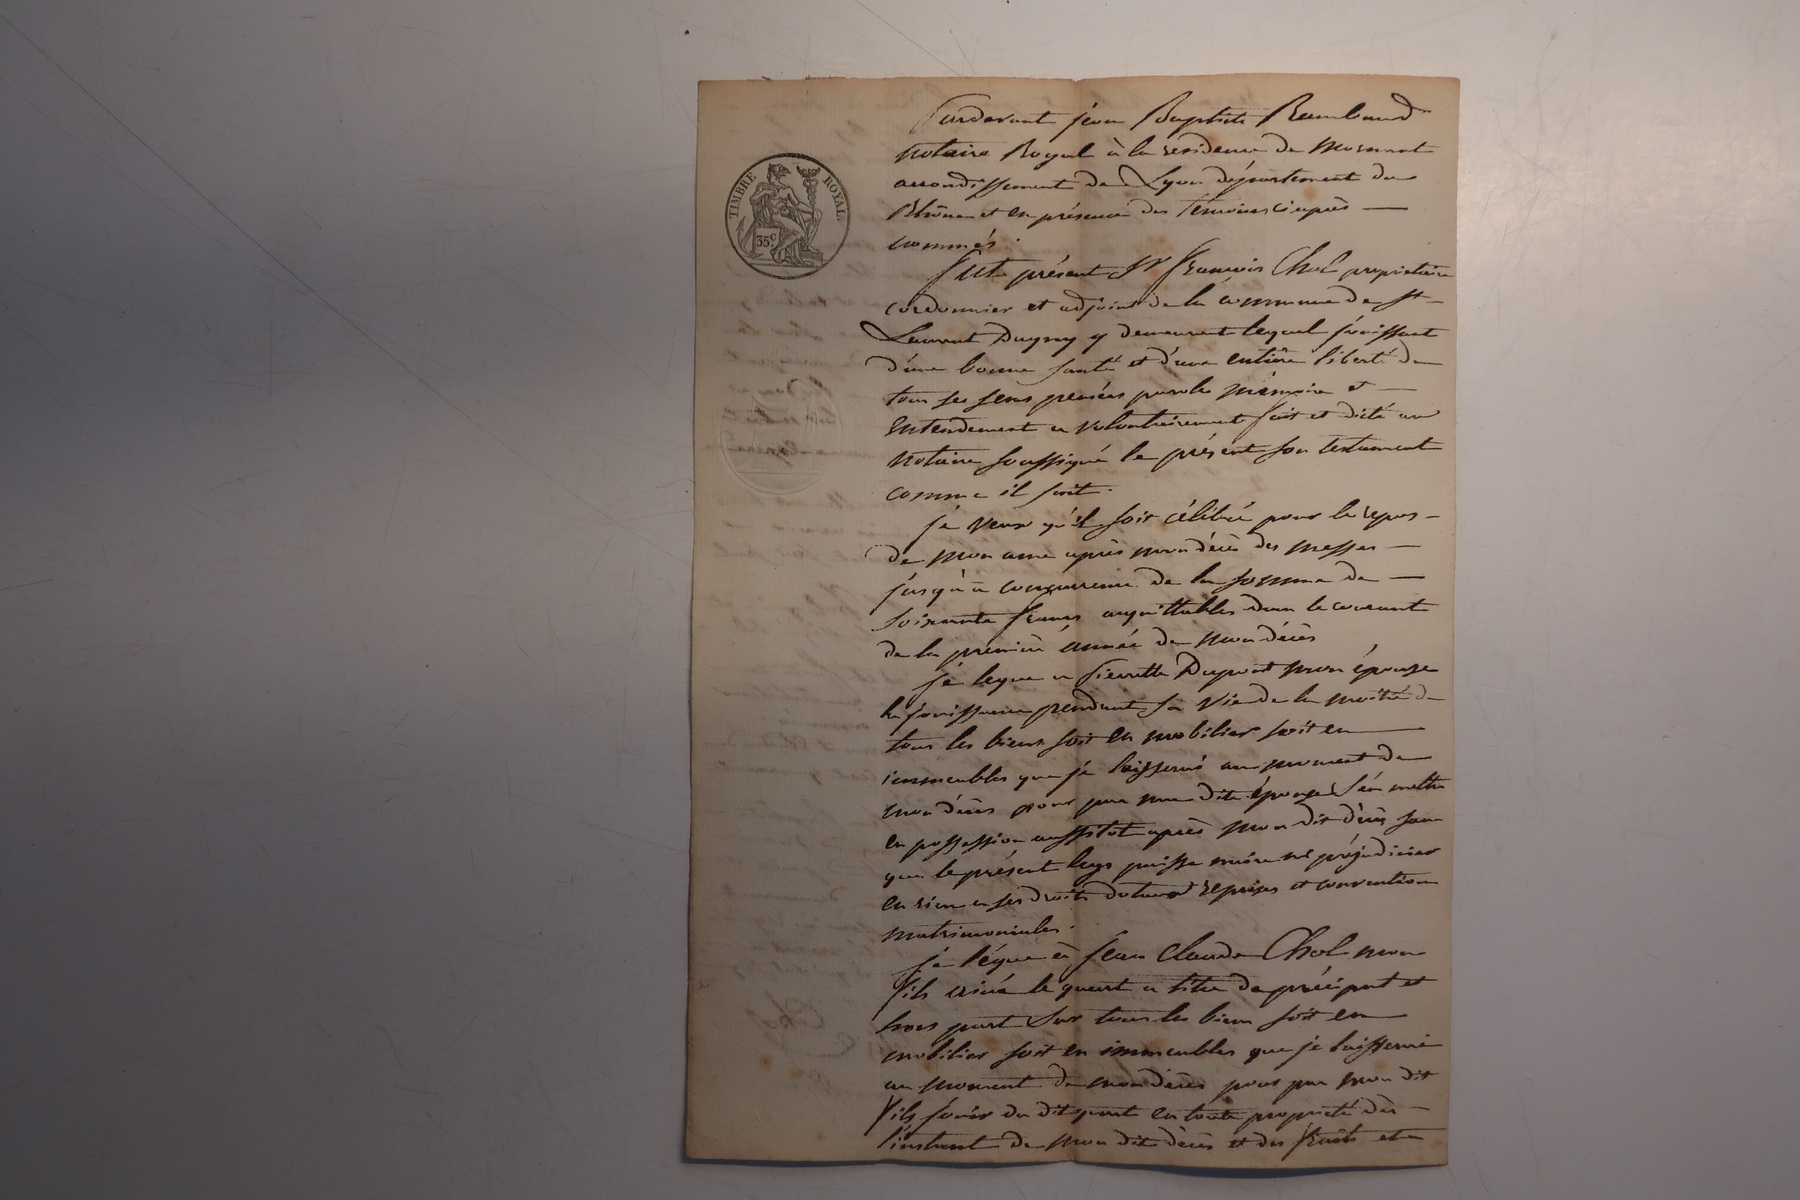 TIMBRE ROYAL
35c
Pardevant jean Baptiste Raimbaud
notaire Royal à la residence de Mornant
arrondissement de Lyon département du
Rhône et en présence des témoins ci après
nommés.
Fut présent Sr françois Chol propriétaire
cordonnier et adjoint de la commune de St
Laurent Dagny y demeurant lequel jouissant
d'une bonne santé et d'une entière liberté de
tous ses sens pensées parole mémoire et
Entendement a volontairement fait et dicté au
notaire soussigné le présent son testament
comme il suit.
je veux qu'il soit célébré pour le repos
de mon ame après mon décès des messes
jusqu'à concurrence de la somme de
soixante francs acquittables dans le courant
de la première année de mon décès
je legue a Pierrette Dupont mon épouse
la jouissance pendant sa vie de la moitié de
tous les biens soit en mobilier soit en
immeubles que je laisserai au moment de
mon décès pour par ma dite épouse s'en mettre
en possession aussitot après mon dit décès sans
que le présent legs puisse nuire ni préjudicier
en rien a ses droits dotaux reprises et convention
matrimoniales.
je légue à jean Claude Chol mon
fils ainé le quart a titre de préciput et
hors part sur tous les biens soit en
mobilier soit en immeubles que je laisserai
au moment de mon décès pour par mon dit
fils jouir du dit quart en toute propriété dès
l'instant de mon dit décès et des fruits et